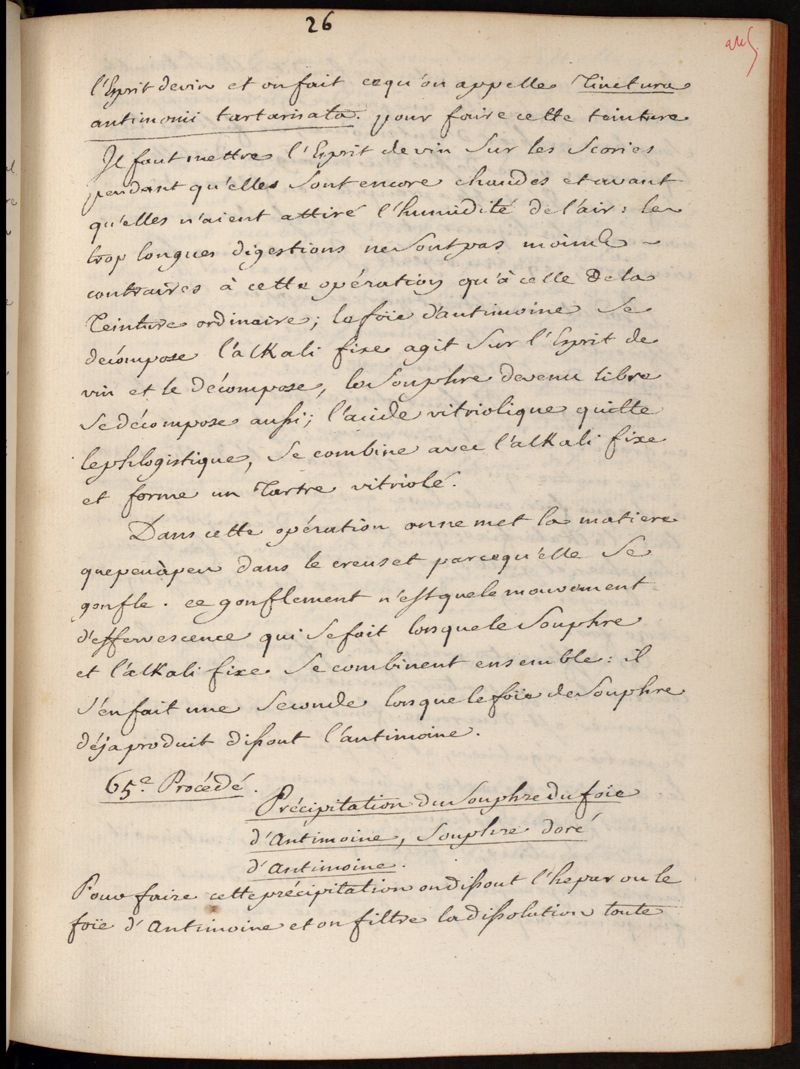 26
l'Esprit de vin et on fait ce qu'on appelle Tinctura
antimonii tartarisata. pour faire cette teinture
Il faut mettre l'Esprit de vin sur les scories
pendant qu'elles sont encore chaudes et avant
qu'elles n'aient attiré l'humidité de l'air: les
trop longues digestions ne sont pas moins
contraires à cette opération qu'à celle de la
Teinture ordinaire; le foïe d'antimoine se
décompose l'alkali fixe agit sur l'Esprit de
vin et le décompose, le souphre devenu libre
se décompose aussi; l'acide vitriolique quitte
le phlogistique, se combine avec l'alkali fixe
et forme un Tartre vitriolé.
Dans cette opération on ne met la matiere
que peu à peu dans le creuset parcequ'elle se
gonfle. ce gonflement n'est que le mouvement
d'effervescence qui se fait lorsque le souphre
et l'alkali fixe se combinent ensemble: il
s'en fait une seconde lorsque le foïe de souphre
déja produit dissout l'antimoine.
65e. Procédé.
Précipitation du souphre du foïe
d'Antimoine, souphre doré
d'antimoine.
Pour faire cette précipitation on dissout l'hepar ou le
foïe d'Antimoine et on filtre la dissolution toute